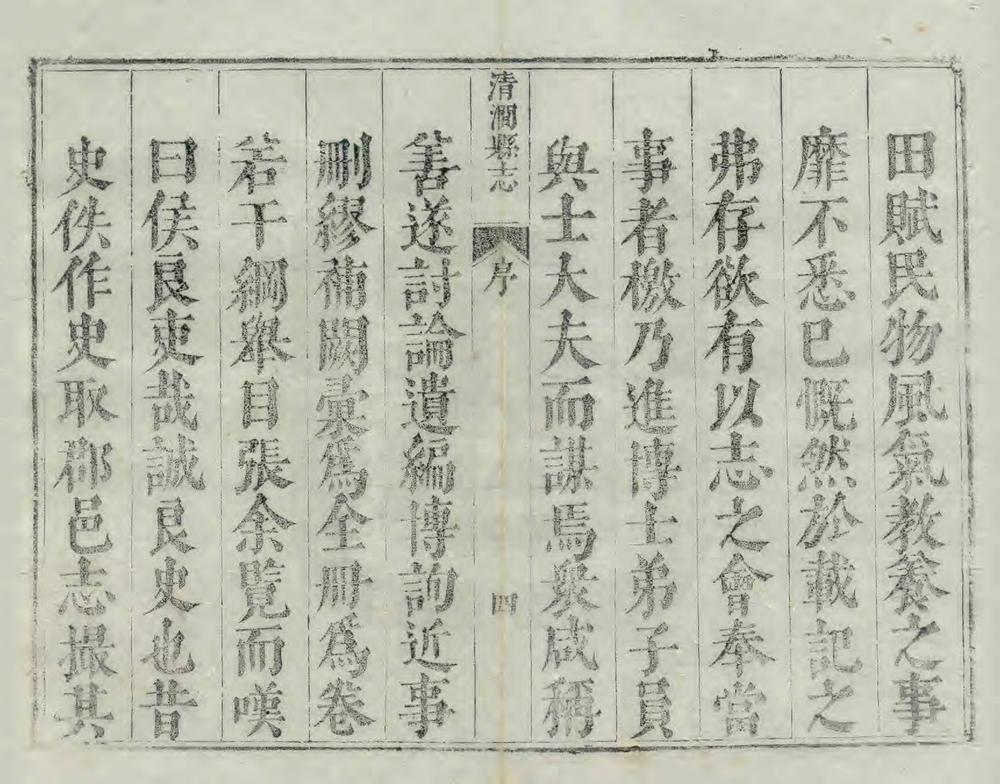 田賦民物風氣教養之事
靡不悉已慨然於載記之
弗存欲有以志之會奉當
事者檄乃進博士弟子員
與士大夫而謀焉衆咸稱
清澗縣志 序 四
善遂討論遺編博詢近事
刪繆補闕彙爲全冊爲卷
若干綱舉目張余覽而嘆
曰侯良吏哉誠良史也昔
史佚作史取郡邑志撮其